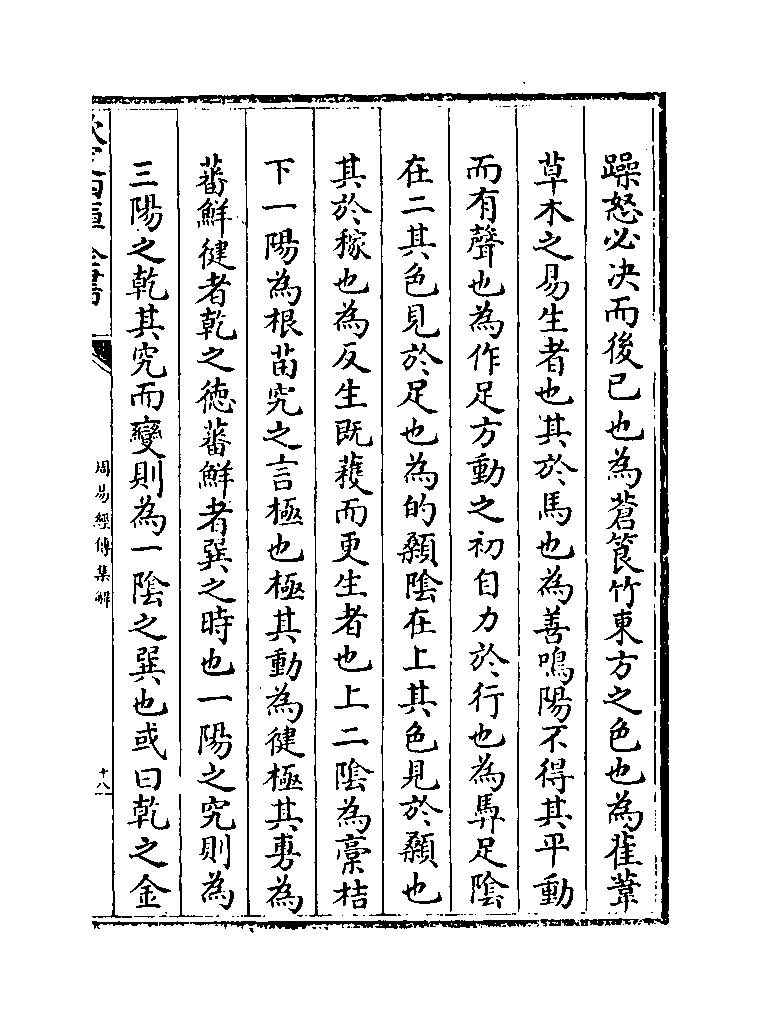 躁怒必决而後已也為蒼筤竹東方之色也為萑葦
草木之易生者也其於馬也為善鳴陽不得其平動
而有聲也為作足方動之初自力於行也為馵足陰
在二其色見於足也為的顙陰在上其色見於顙也
其於稼也為反生既蘀而更生者也上二陰為稾桔
下一陽為根苗究之言極也極其動為健極其旉為
蕃鮮健者乾之徳蕃鮮者巽之時也一陽之究則為
三陽之乾其究而變則為一陰之巽也或曰乾之金
欽定四庫全書
周易經傳集解
十八